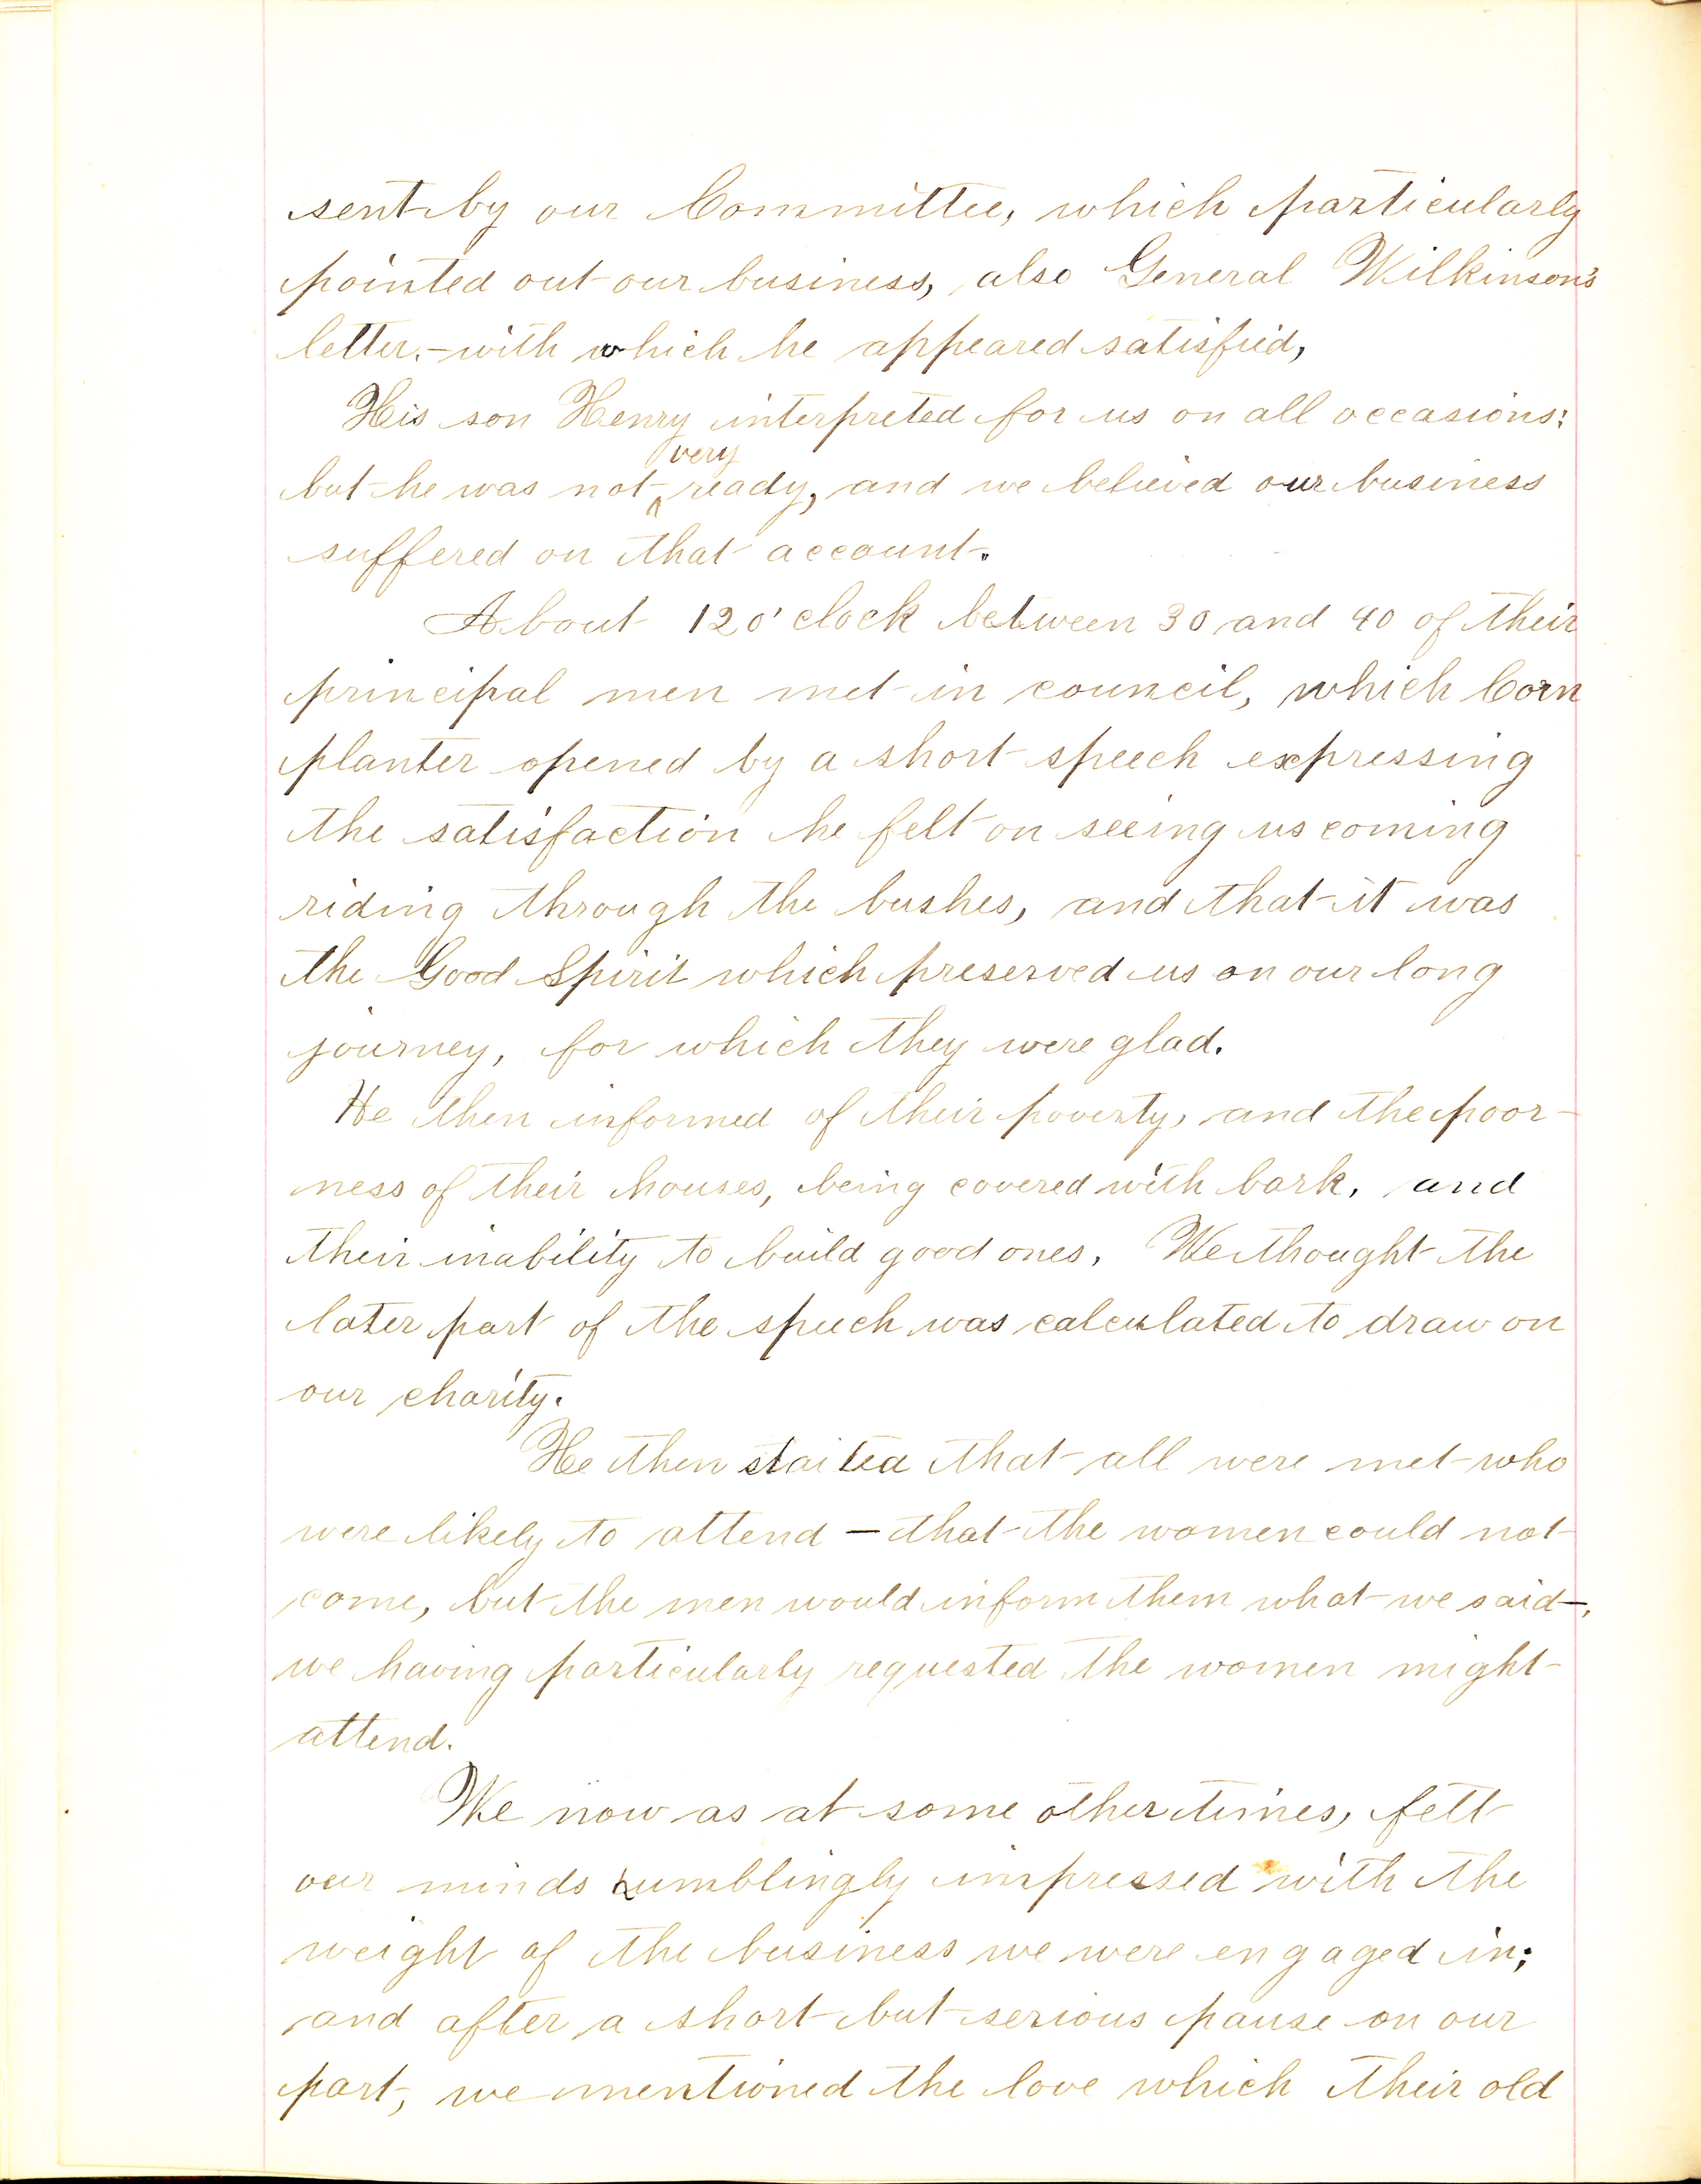 sent by our Committee, which particularly
pointed out our business, also General Wilkinson's
letter, - with which he appeared satisfied,
His son Henry interpreted for us on all occasions:
very
but he was not ready, and we believed our business
suffered on that account.
About 12 o'clock between 30 and 40 of their
principal men met in council, which Corn
planter opened by a short speech expressing
the satisfaction he felt on seeing us coming
riding through the bushes, and that it was
the Good Spirit which preserved us on our long
journey, for which they were glad.
He then informed of their poverty, and the poor-
ness of their houses, being covered with bark, and
their inability to build good ones. We thought the
later part of the speech was calculated to draw on
our charity.
He then staited that all were met who
were likely to attend — that the women could not
come, but the men would inform them what we said —,
we having particularly requested the women might
attend.
We now as at some other times, felt
our minds humblingly impressed with the
weight of the business we were engaged in;
and after a short but serious pause on our
part, we mentioned the love which their old